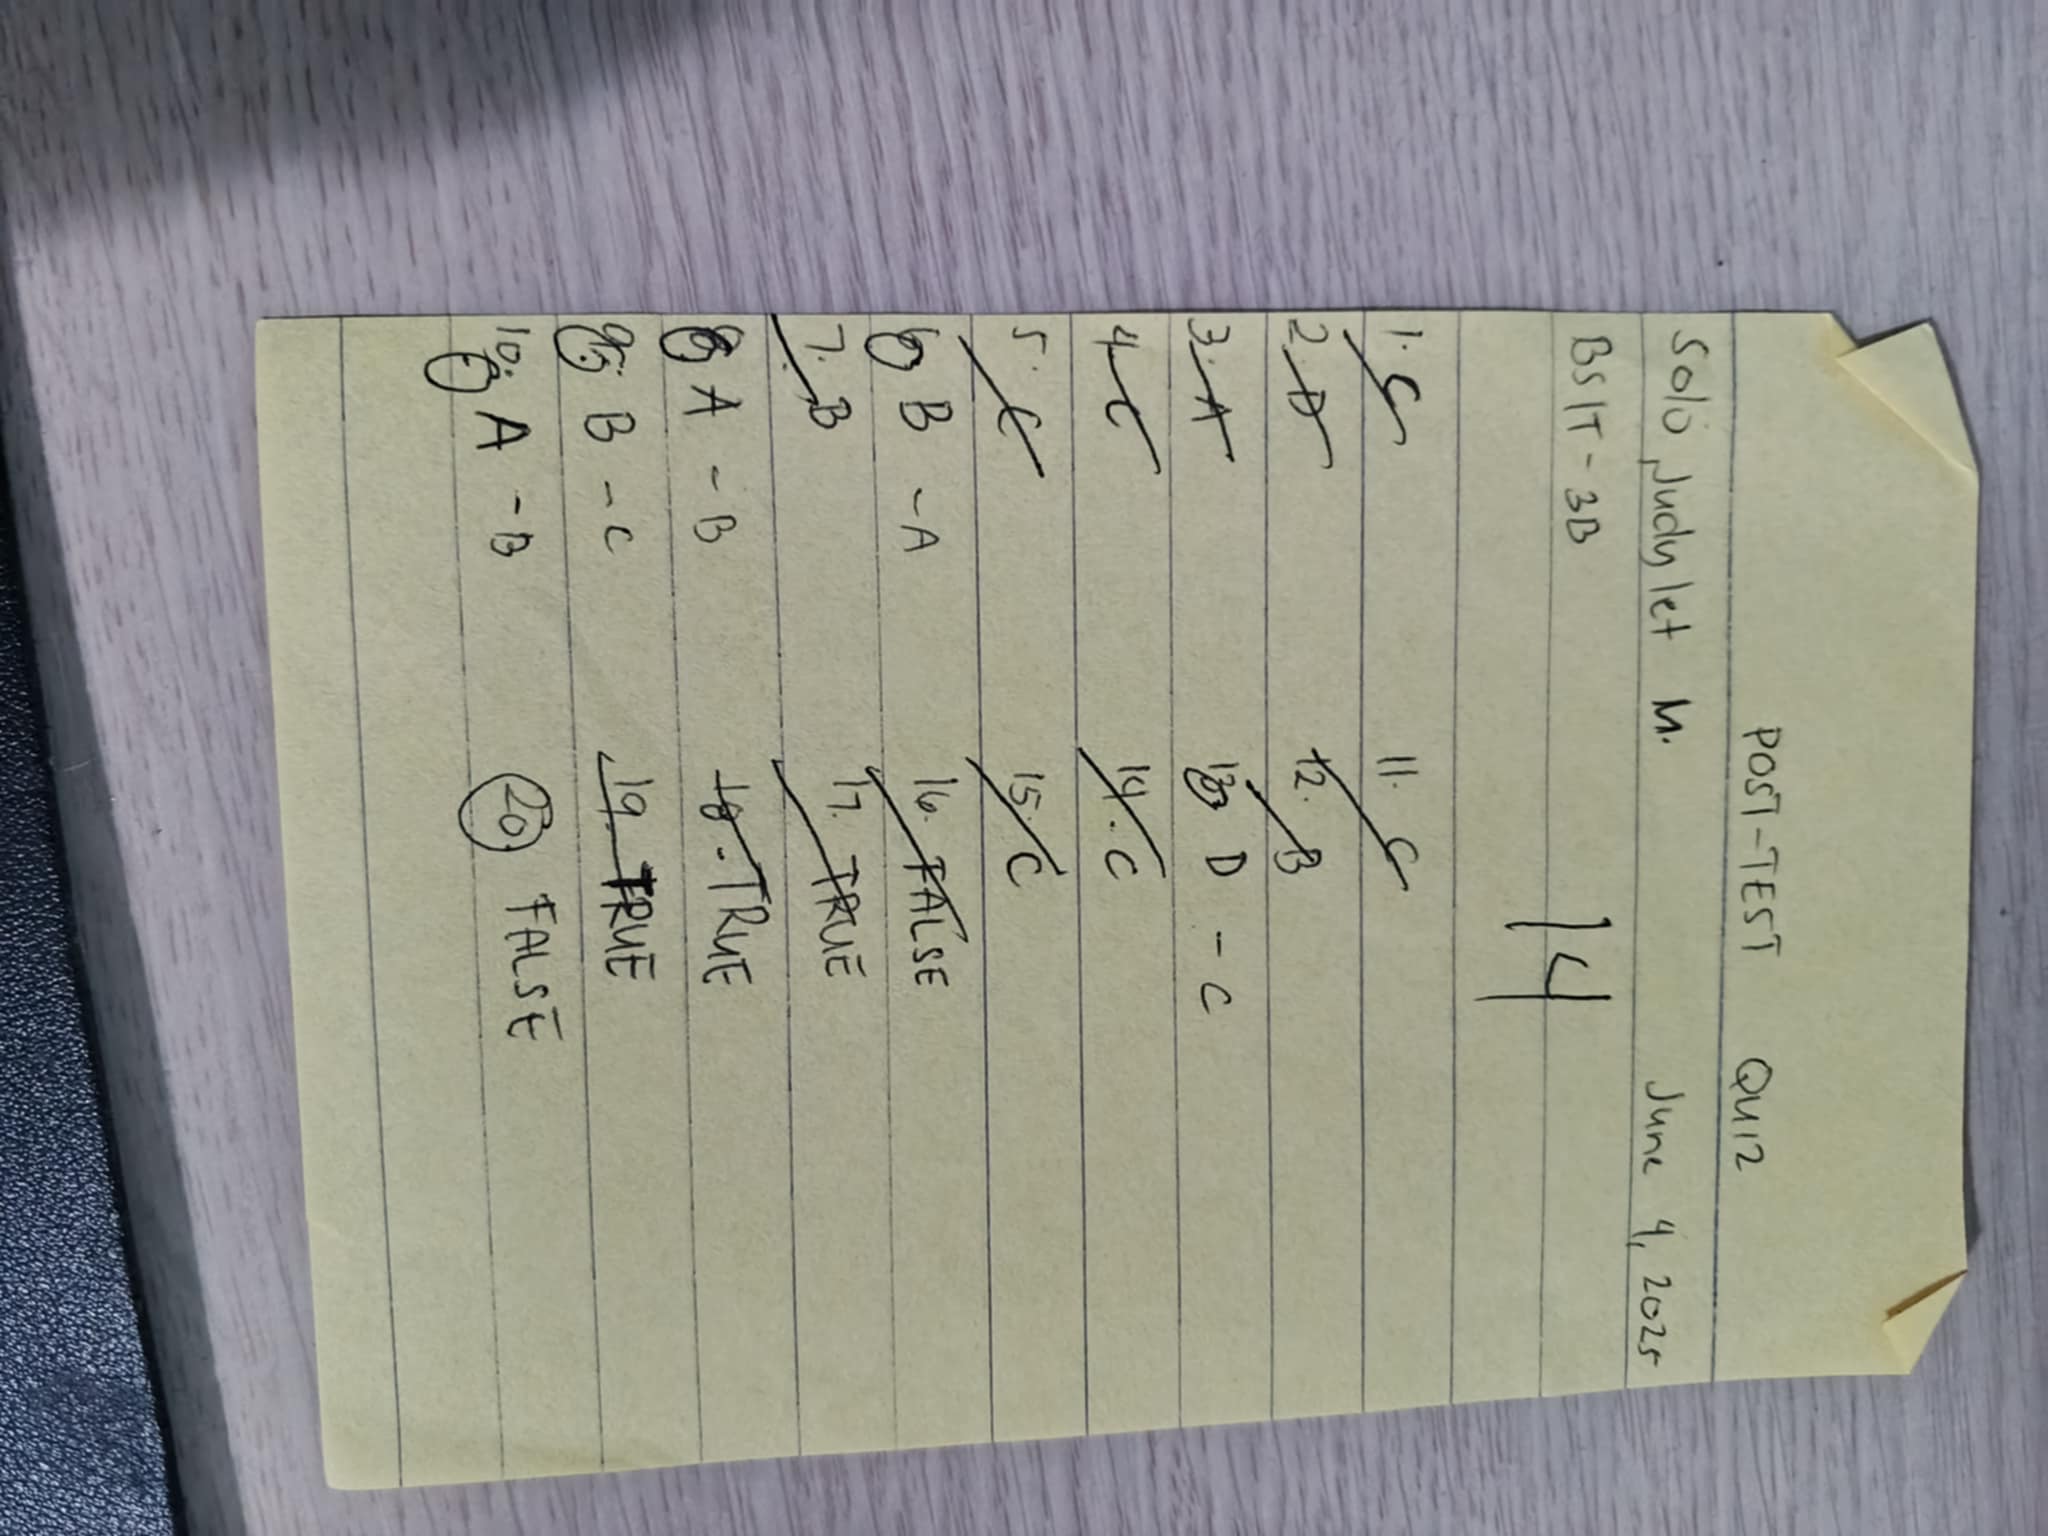 POST-TEST QUIZ
Solo, Judylet M. June 4, 2025
BSIT - 3B 14
1. C
2. D
3. A
4. C
5. C
6. B - A
7. B
8. A - B
9. B - C
10. A - B
11. C
12. B
13. D - C
14. C
15. C
16. FALSE
17. TRUE
18. TRUE
19. TRUE
20. FALSE